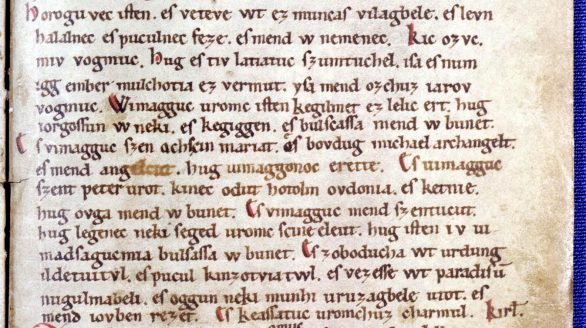 horogu vec isten. es veteve wt ez muncas vilagbele. es levn
halalnec es puculnec feze. es mend w nemenec. Kic ozvc.
miv vogmuc. hug es tiv latiatuc szumtuchel. isa es num
igg ember mulchotia ez vermut. ysa mend ozchuz iarov
vogmuc. Wimagguc uromc isten kegilmet ez lelic ert. hug
iorgossun w neki. es kegiggen. es bulscassa mend w bunet.
Es vimagguc szen achscin mariat. es bovdug michael archangelt.
es mend angelcut. hug uimaggonoc erette. Es uimagguc
szent peter urot. kinec odut hotolm ovdonia. es ketnie.
hug ovga mend w bunet. Es vimagguc mend szentucut.
hug legenec neki seged uromc scine eleut. hug isten iv ui
madsagucmia bulsassa w bunet. Es zoboducha wt urdung
ildetuitvl. es pucul kinzotviatvl. es vezesse wt paradisū
nugulmabeli. es oggun neki munhi uruzagbele utot. es
mend iovben rezet. Es keassatuc uromchuz charmul. Kirł.